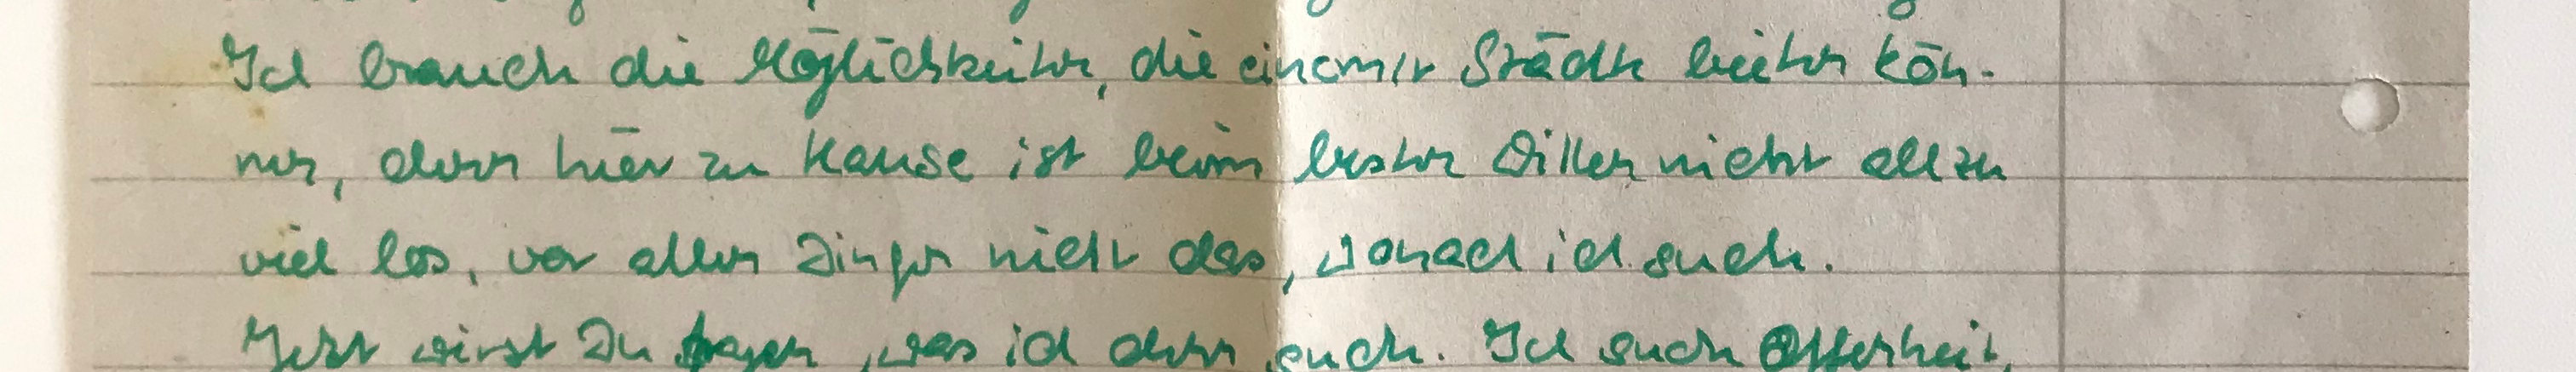 Ich brauche die Möglichkeiten, die einem nur Städte bieten kön-
nen, denn hier zu Hause ist beim besten Willen nicht allzu
viel los, vor allen Dingen nicht das, wonach ich suche.
Jetzt wirst Du fragen, was ich denn suche. Ich suche Offenheit,